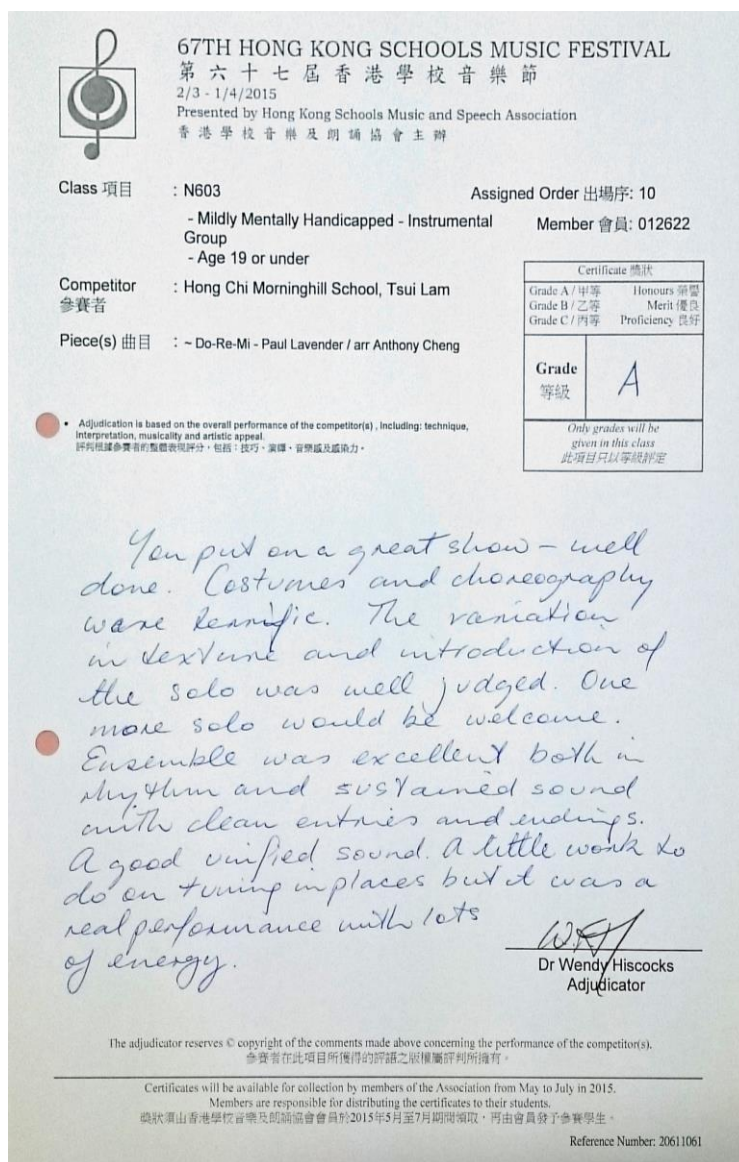 67TH HONG KONG SCHOOLS MUSIC FESTIVAL
第六十七屆香港學校音樂節
2/3 - 1/4/2015
Presented by Hong Kong Schools Music and Speech Association
香港學校音樂及朗誦協會主辦
Class 項目 : N603
Assigned Order 出場序: 10
- Mildly Mentally Handicapped - Instrumental
Group
- Age 19 or under
Member 會員: 012622
Competitor : Hong Chi Morninghill School, Tsui Lam
參賽者
Piece(s) 曲目 : ~ Do-Re-Mi - Paul Lavender / arr Anthony Cheng
Certificate 獎狀
Grade A / 甲等 Honours 榮譽
Grade B / 乙等 Merit 優良
Grade C / 丙等 Proficiency 良好
Grade
等級
A
Only grades will be
given in this class
此項目只以等級評定
• Adjudication is based on the overall performance of the competitor(s) , including: technique,
interpretation, musicality and artistic appeal.
評判根據參賽者的整體表現評分，包括：技巧、演繹、音樂感及感染力。
You put on a great show – well
done. Costumes and choreography
were terrific. The variation
in texture and introduction of
the solo was well judged. One
more solo would be welcome.
Ensemble was excellent both in
rhythm and sustained sound
with clean entries and endings.
A good unified sound. A little work to
do on tuning in places but it was a
real performance with lots
of energy.
Dr Wendy Hiscocks
Adjudicator
The adjudicator reserves © copyright of the comments made above concerning the performance of the competitor(s).
參賽者在此項目所獲得的評語之版權屬評判所擁有。
Certificates will be available for collection by members of the Association from May to July in 2015.
Members are responsible for distributing the certificates to their students.
獎狀須由香港學校音樂及朗誦協會會員於2015年5月至7月期間領取，再由會員發予參賽學生。
Reference Number: 20611061